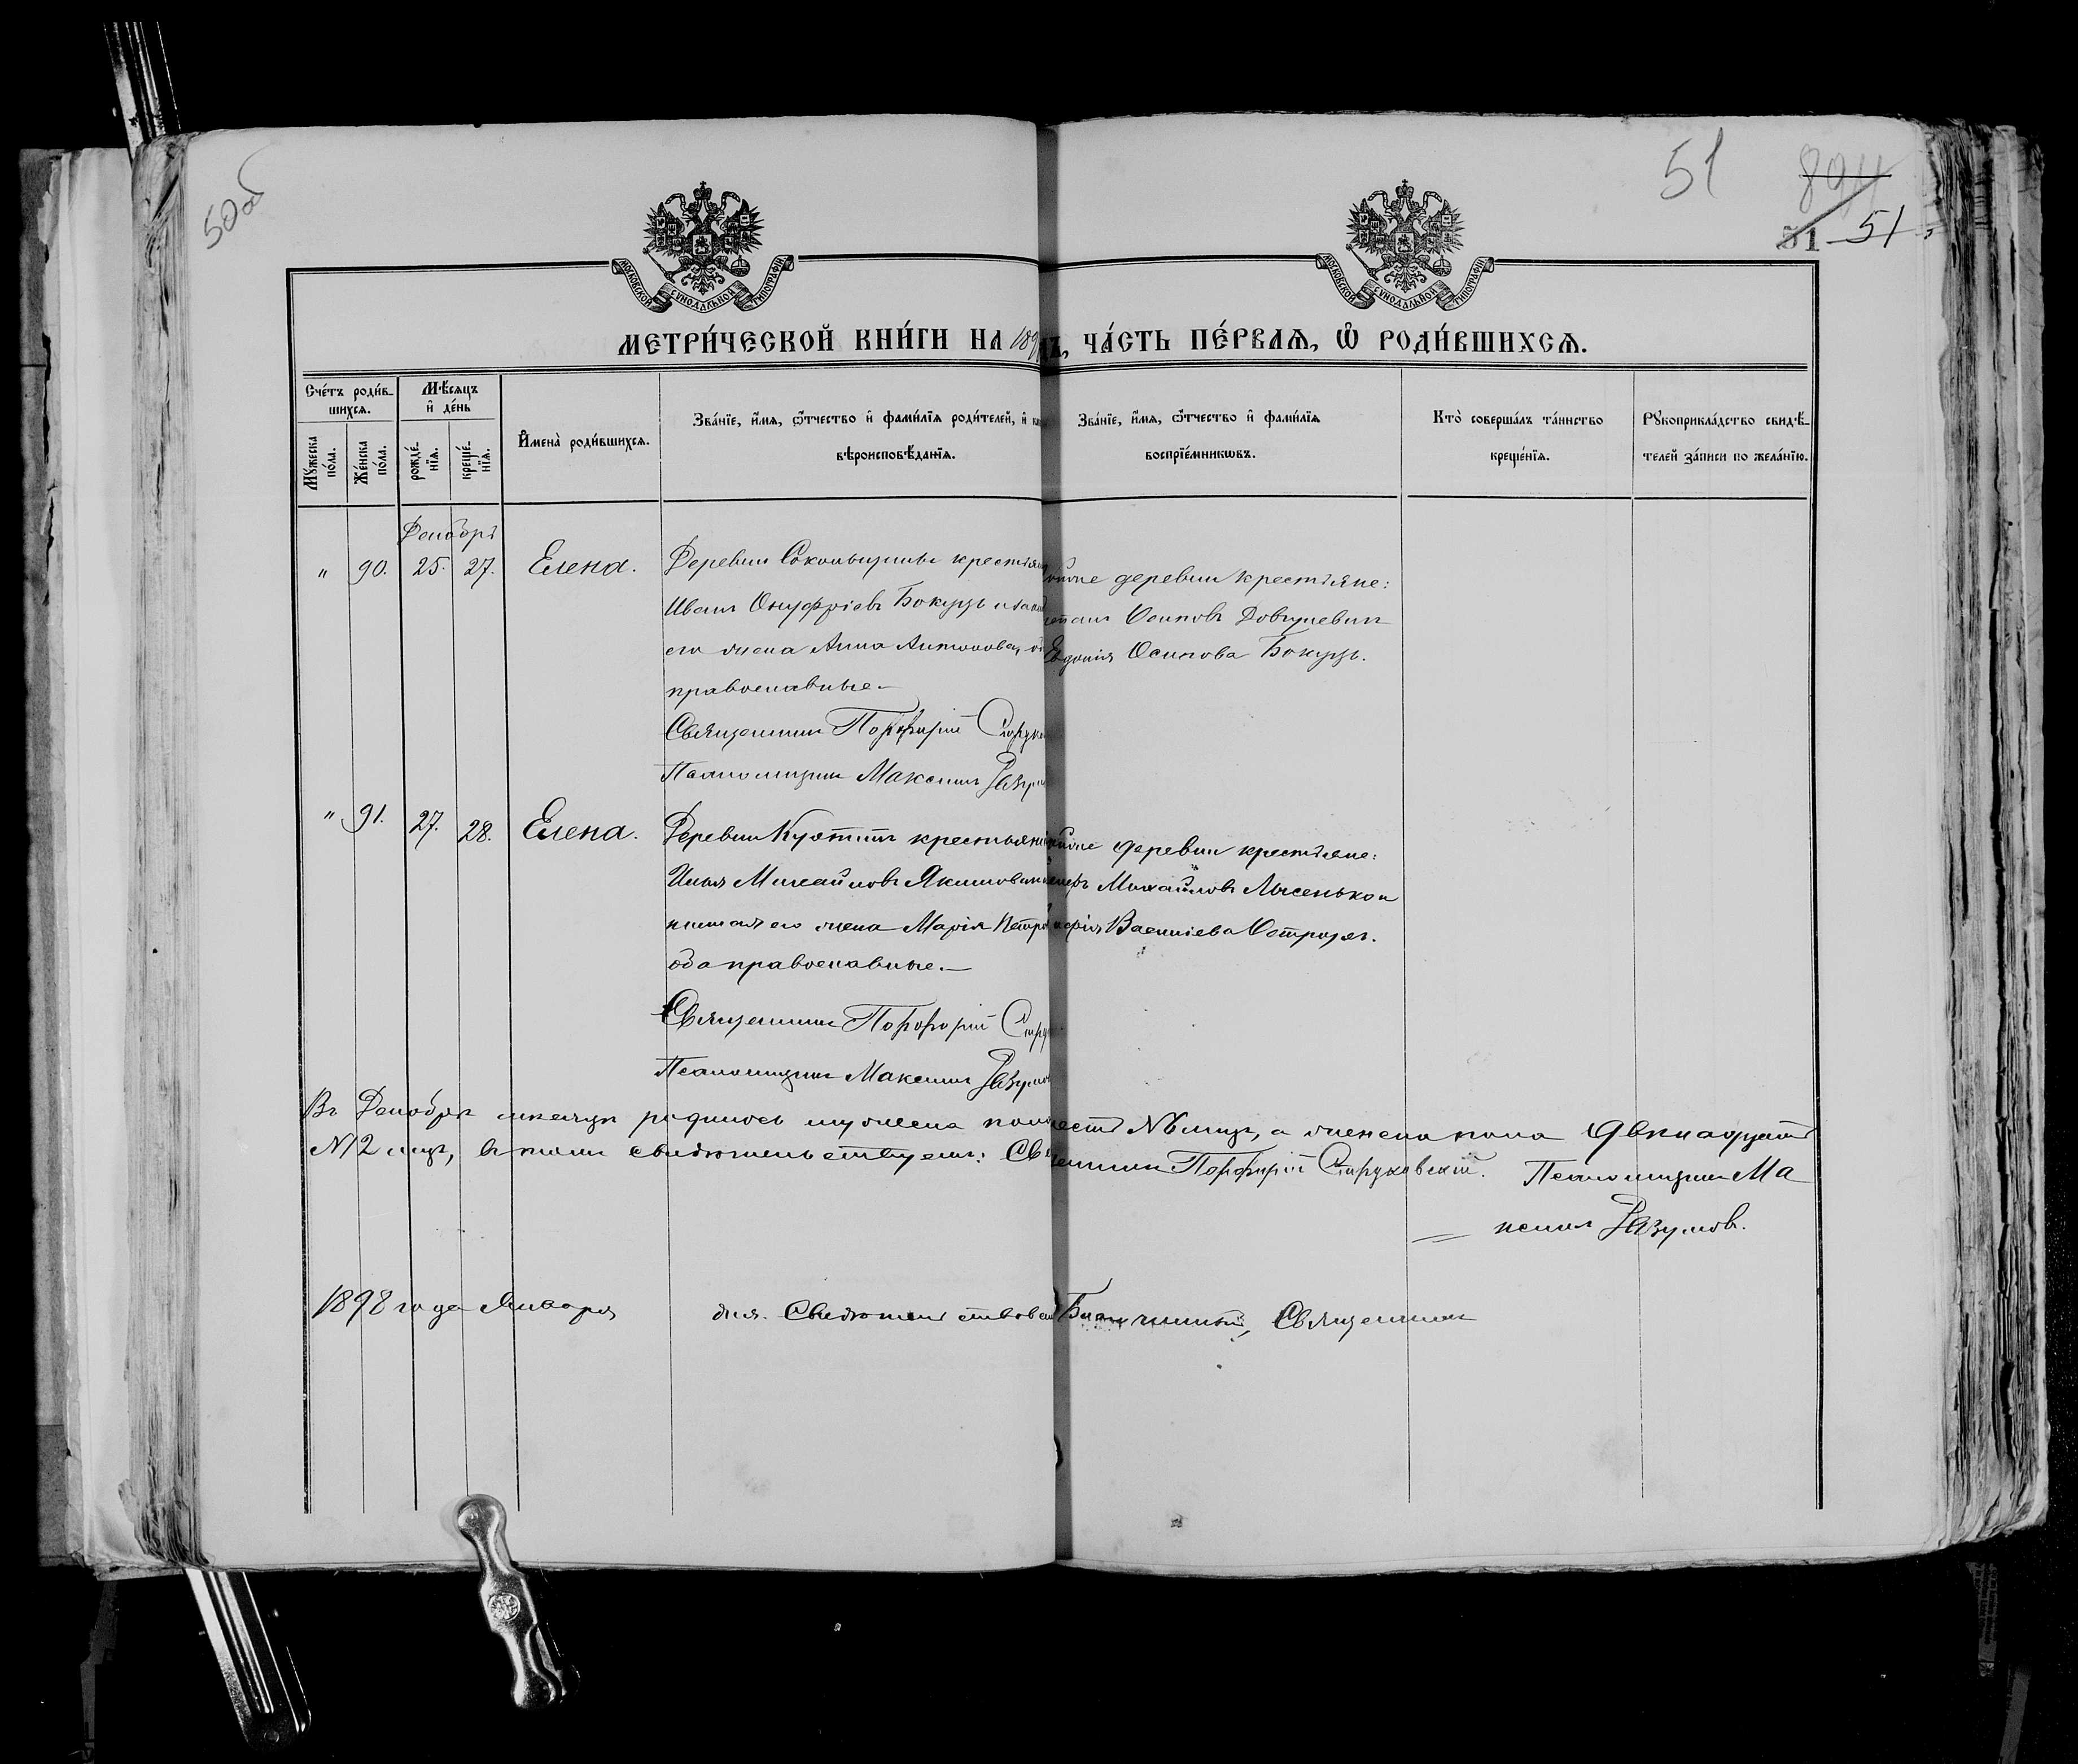 50об
51
894
51 51
МОСКОВСКОЙ СѴНОДАЛЬНОЙ ТИПОГРАФІИ
МОСКОВСКОЙ СѴНОДАЛЬНОЙ ТИПОГРАФІИ
МЕТРИ́ЧЕСКОЙ КНИ́ГИ НА 189
Ъ, ЧА́СТЬ ПЕ́РВАЯ, Ѡ҆ РОДИ́ВШИХСЯ.
Сче́тъ роди́в-
шихся.
Мѣ́сяцъ
и҆ де́нь
Мꙋ́жеска
по́ла.
Же́нска
по́ла.
рожде́-
нїя.
креще́-
нїя.
И҆мена̀ роди́вшихся.
Зва́нїе, и҆́мя, ѻ҆́тчество и҆ фами́лїя роди́телей, и҆
вѣроисповѣ́данїя.
Зва́нїе, и҆́мя, ѻ҆́тчество и҆ фами́лїя
воспрїе́мникѡвъ.
Кто̀ соверша́лъ та́инство
креще́нїя.
Рꙋкоприкла́дство свидѣ́-
телей за́писи по жела́нїю.
Декабрь
" 90. 25. 27. Елена.
Деревни крестьян
Иванъ Онуфріевъ Бокуцъ и
его жена Анна Антонова, о
православные.—
Священникъ Порфирій Струк
Псаломщикъ Максимъ Разум
деревни крестьяне:
Осиповъ Довгулевич
Евдокія Осипова Бокуцъ.
" 91. 27. 28. Елена.
Деревни крестьяни
Илья Михайловъ Якимович
его жена Марія Петро
оба православные.—
Священникъ Порфирій Стру
Псаломщикъ Максимъ Разумо
деревни крестьяне:
Михайловъ Лысенько и
Василіева
Въ Декабрѣ мѣсяцѣ родилось мужеска пола шесть №6 лицъ, а женска пола двѣнадцать
№12 лицъ, въ томъ свидѣтельствуемъ: Священникъ Порфирій Струковскій. Псаломщикъ Ма
ксимъ Разумов.
1898 года Января дня. Свидѣтельствовалъ Благочинный, Священникъ